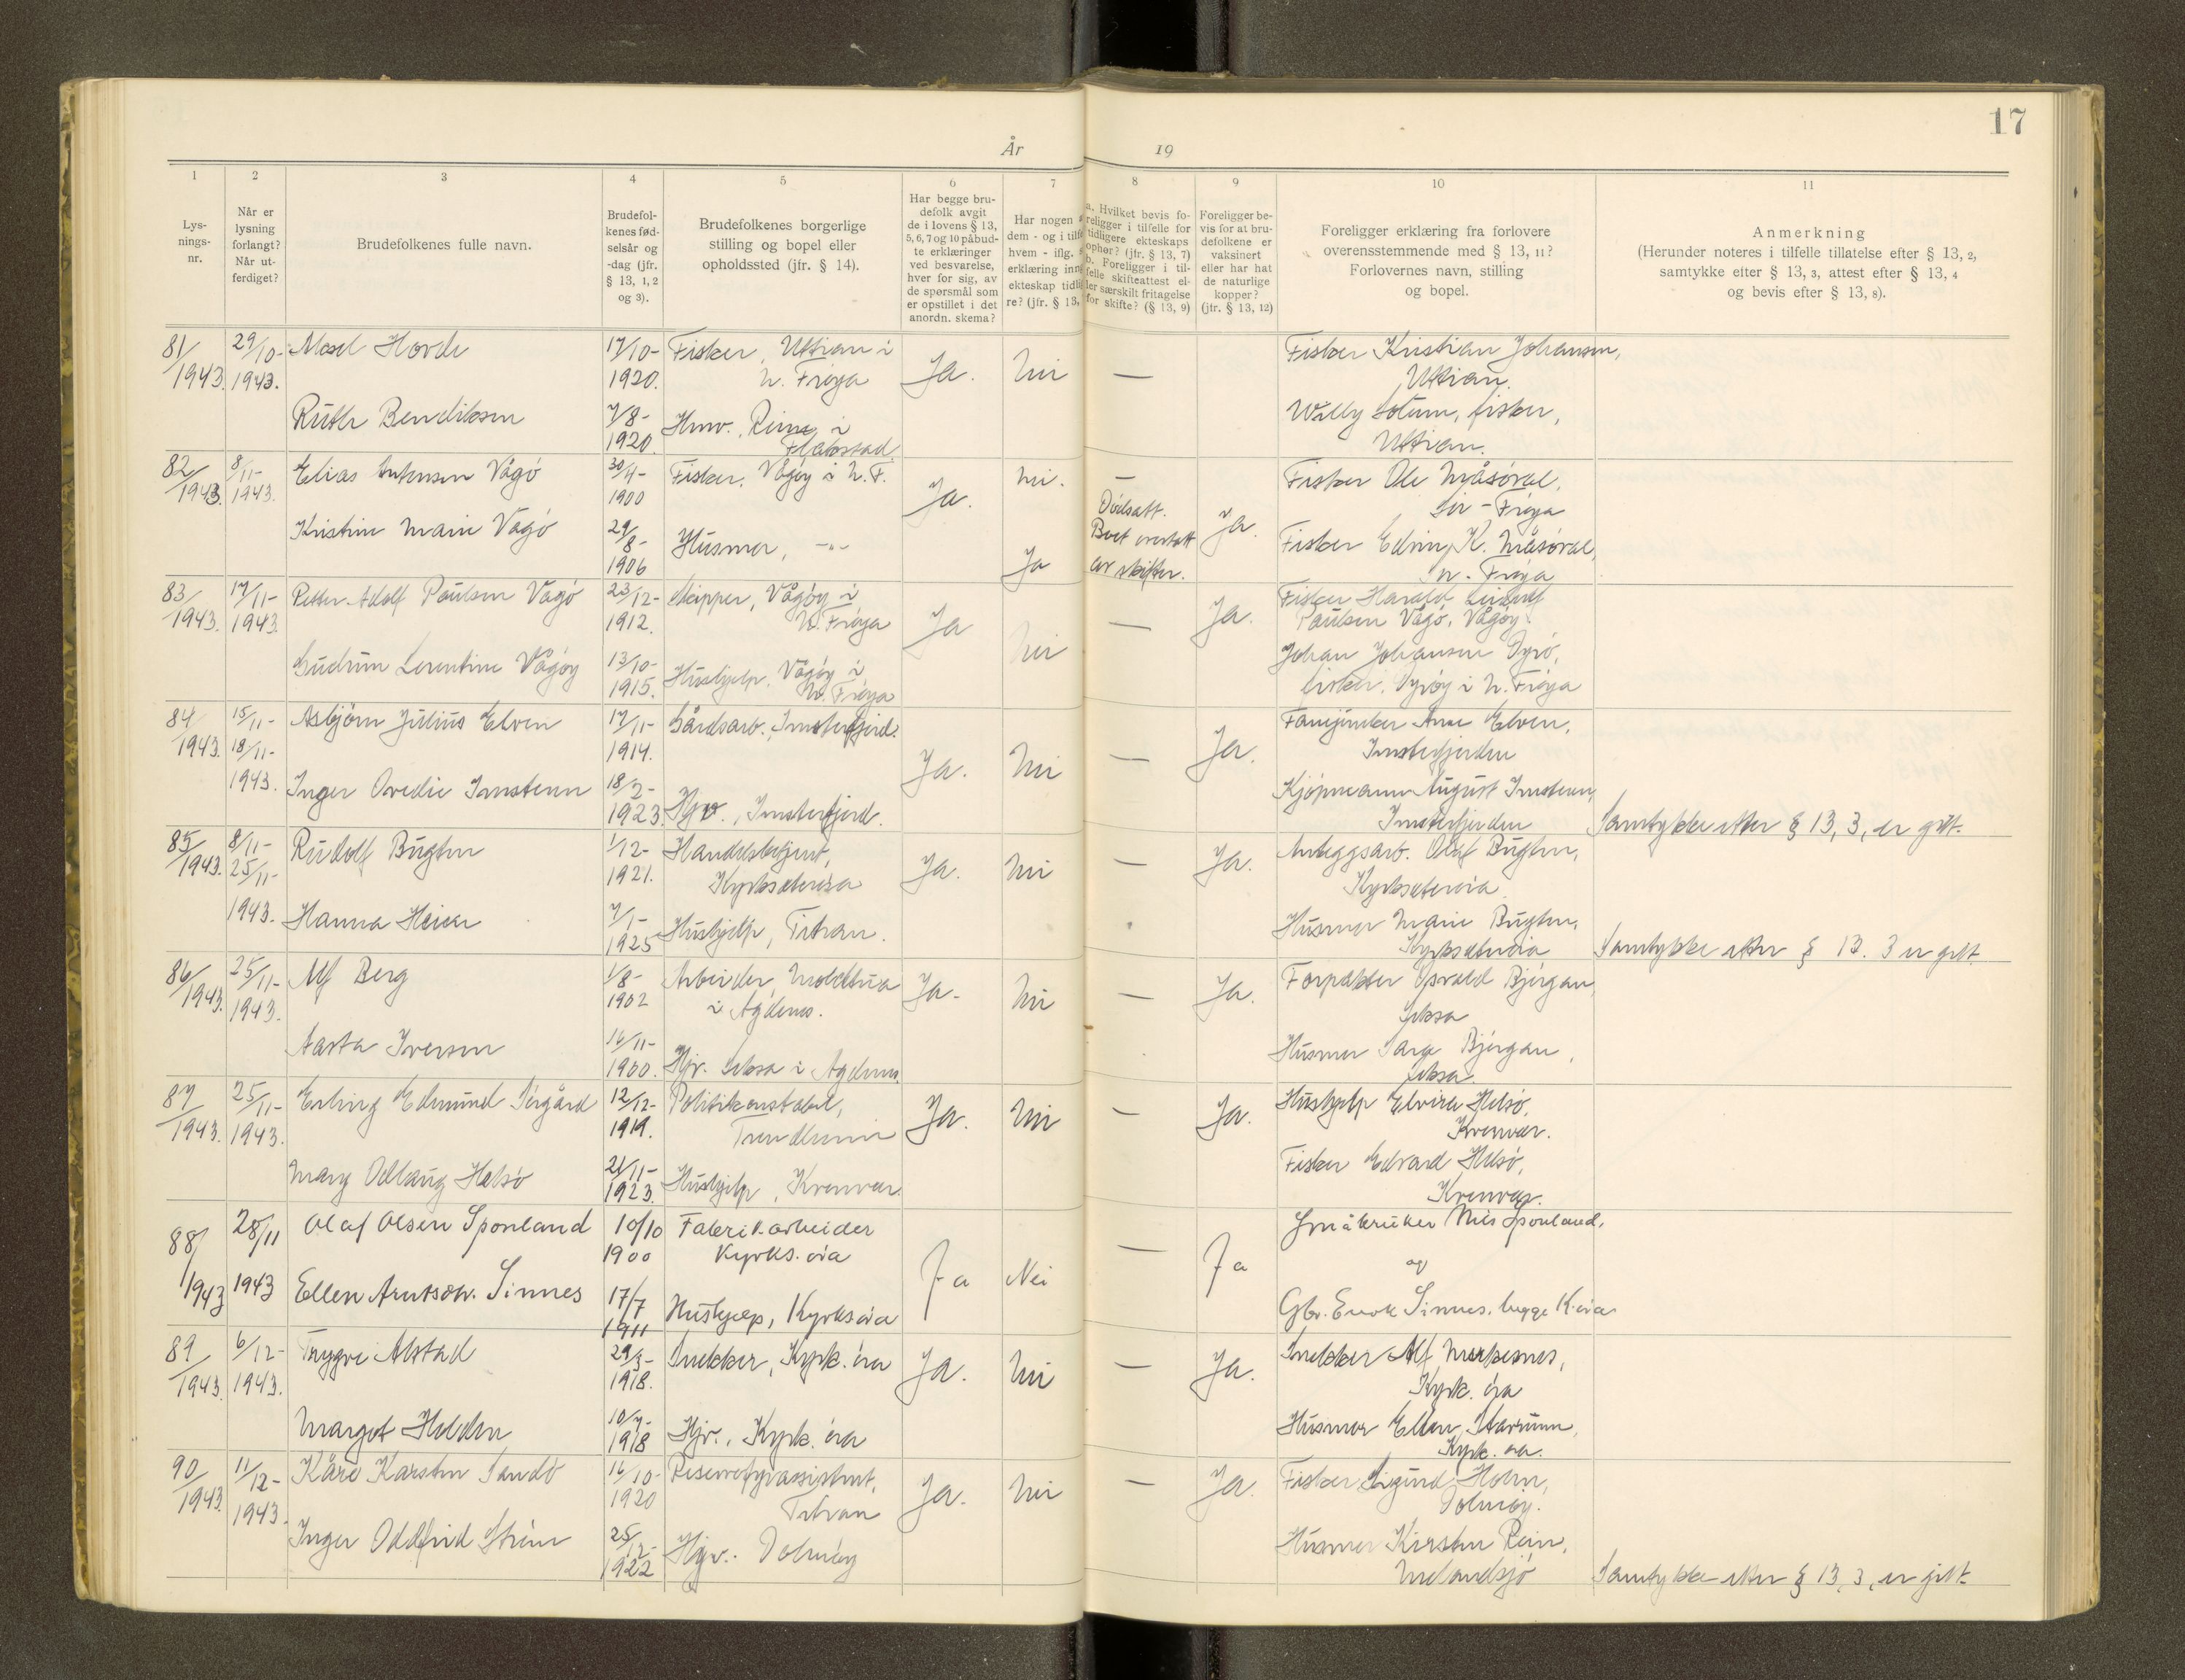 17
År 19
1
2
3
4
5
6
7
8
9
10
11
Lys-
nings-
nr.
Når er
lysning
forlangt?
Når ut-
ferdiget?
Brudefolkenes fulle navn.
Brudefol-
kenes fød-
selsår og
-dag (jfr.
§ 13, 1, 2
og 3).
Brudefolkenes borgerlige
stilling og bopel eller
opholdssted (jfr. § 14).
Har begge bru-
defolk avgit
de i lovens § 13,
5, 6, 7 og 10 påbud-
te erklæringer
ved besvarelse,
hver for sig, av
de spørsmål som
er opstillet i det
anordn. skema?
Har nogen
dem - og i tilf
hvem - iflg.
erklæring inn
ekteskap tidli
re? (jfr. § 13,
a. Hvilket bevis fo-
religger i tilfelle for
tidligere ekteskaps
ophør? (jfr. § 13, 7)
b. Foreligger i til-
felle skifteattest el-
ler særskilt fritagelse
for skifte? (§ 13, 9)
Foreligger be-
vis for at bru-
defolkene er
vaksinert
eller har hat
de naturlige
kopper?
(jfr. § 13, 12)
Foreligger erklæring fra forlovere
overensstemmende med § 13, 11?
Forlovernes navn, stilling
og bopel.
Anmerkning
(Herunder noteres i tilfelle tillatelse efter § 13, 2,
samtykke efter § 13, 3, attest efter § 13, 4
og bevis efter § 13, 8).
81/ 29/10- Hovde 17/10- Fisker, Uttian i Fisker Kristian Johansen,
1943. 1943. 1920. N. Frøya Ja. Nei — Uttian.
Ruth Bendiksen 7/8- Hmv. i Willy fisker,
1920. Flakstad Uttian.
82/ 8/11- Elias Antonsen Vågø 30/4- Fisker, Vågøy i N. F. Nei. — Fisker Ole Måsøval,
1943. 1943. 1900 Ja. Dødsatt. Ja. Sør-Frøya
Kristine Marie Vågø 29/8- Husmor, -"- Boet overtatt Fisker K. Måsøval,
1906 Ja av skifter. Frøya
83/ 17/11- Petter Adolf Paulsen Vågø 23/12- Skipper, Vågøy i Fisker Harald
1943. 1943. 1912. N. Frøya Ja Nei — Ja. Paulsen Vågø, Vågøy
Gudrun Lorentine Vågøy 13/10- Hushjelp, Vågøy i Johan Johansen Dyrø,
1915. N. Frøya fisker, Dyrøy i N. Frøya
84/ 15/11- Asbjørn Julius Elven 17/11- Gårdsarb., Imsterfjord. Arne Elven,
1943. 18/11- 1914. Ja. Nei — Ja. Imsterfjorden
1943. Inger Ovedie Imsterm 18/2- Kjøpmann August Imsterm,
1923. Hjv., Imsterfjord. Imsterfjorden Samtykke etter § 13, 3, er gitt.
85/ 8/11- Rudolf Bugten 1/12- Handelsbetjent, Anleggsarb. Olaf Bugten,
1943. 25/11- 1921. Kyrksæterøra Ja. Nei — Ja. Kyrksæterøra
1943. Hanna 7/1- Hushjelp, Titran. Husmor Marie Bugten,
1925 Kyrksæterøra Samtykke etter § 13. 3 er gitt.
86/ 25/11- Alf Berg 1/8- Arbeider, Moldtua Ja. Nei — Ja. Forpakter Osvald Bjørgan,
1943. 1943. 1902 i Agdenes. Selbsa
Aasta Iversen 16/11- Husmor Bjørgan,
1900. Hjv. i Agdenes
87/ 25/11- Erling Edmund Sørgård 12/12- Politikonstabel, Ja. Nei — Ja. Hushjelp Elvira Helsø,
1943. 1943. 1919. Trondheim Kvenvær.
Mary Odlaug Helsø 21/11- Hushjelp, Kvenvær. Fisker Edvard Helsø,
1923. Kvenvær.
88/ 28/11 Olaf Olsen Sponland 10/10 Fabrik.arbeider — Småbruker Nils Sponland.
1943 1943 1900 Kyrks.øra Ja Nei Ja og
Ellen Arntsdtr. Sinnes 17/7 Hushjelp, Kyrksøra Gbr. Enok Sinnes, begge K.øra
1911
89/ 6/12- Trygve Alstad 29/3- Snekker, Kyrk.øra Ja. Nei — Ja. Snekker Alf
1943. 1943. 1918. Kyrk.øra
Margot Helden 10/7- Hjv., Kyrk.øra Husmor Ellen
1918 Kyrk.øra.
90/ 11/12- Kåre Karsten Sandø 16/10- Reservefyrassistent, Ja. Nei — Ja. Fisker Sigurd Holm,
1943. 1943. 1920 Titran Dolmøy.
Inger Oddfrid Strøm 25/12- Hjv. Dolmøy Husmor Kirsten Rein,
1922 Melandsjø Samtykke etter § 13, 3, er gitt.